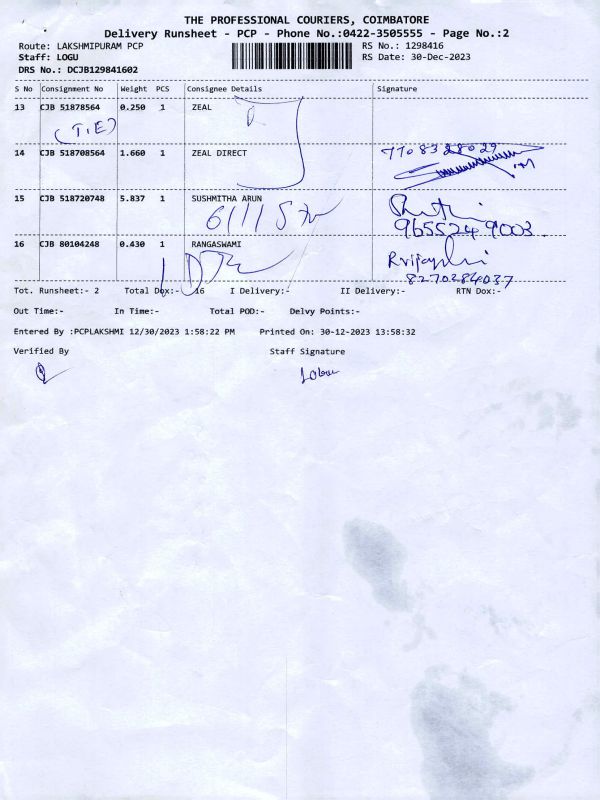 THE PROFESSIONAL COURIERS, COIMBATORE
Delivery Runsheet - PCP - Phone No.:0422-3505555 - Page No.:2
Route: LAKSHMIPURAM PCP RS No.: 1298416
Staff: LOGU RS Date: 30-Dec-2023
DRS No.: DCJB129841602
S No Consignment No Weight PCS Consignee Details Signature
13 CJB 51878564 0.250 1 ZEAL
(T.E)
7708328029
14 CJB 518708564 1.660 1 ZEAL DIRECT
15 CJB 518720748 5.837 1 SUSHMITHA ARUN
9655249003
16 CJB 80104248 0.430 1 RANGASWAMI
8270284037
Tot. Runsheet:- 2 Total Dox:- 16 I Delivery:- II Delivery:- RTN Dox:-
Out Time:- In Time:- Total POD:- Delvy Points:-
Entered By :PCPLAKSHMI 12/30/2023 1:58:22 PM Printed On: 30-12-2023 13:58:32
Verified By Staff Signature